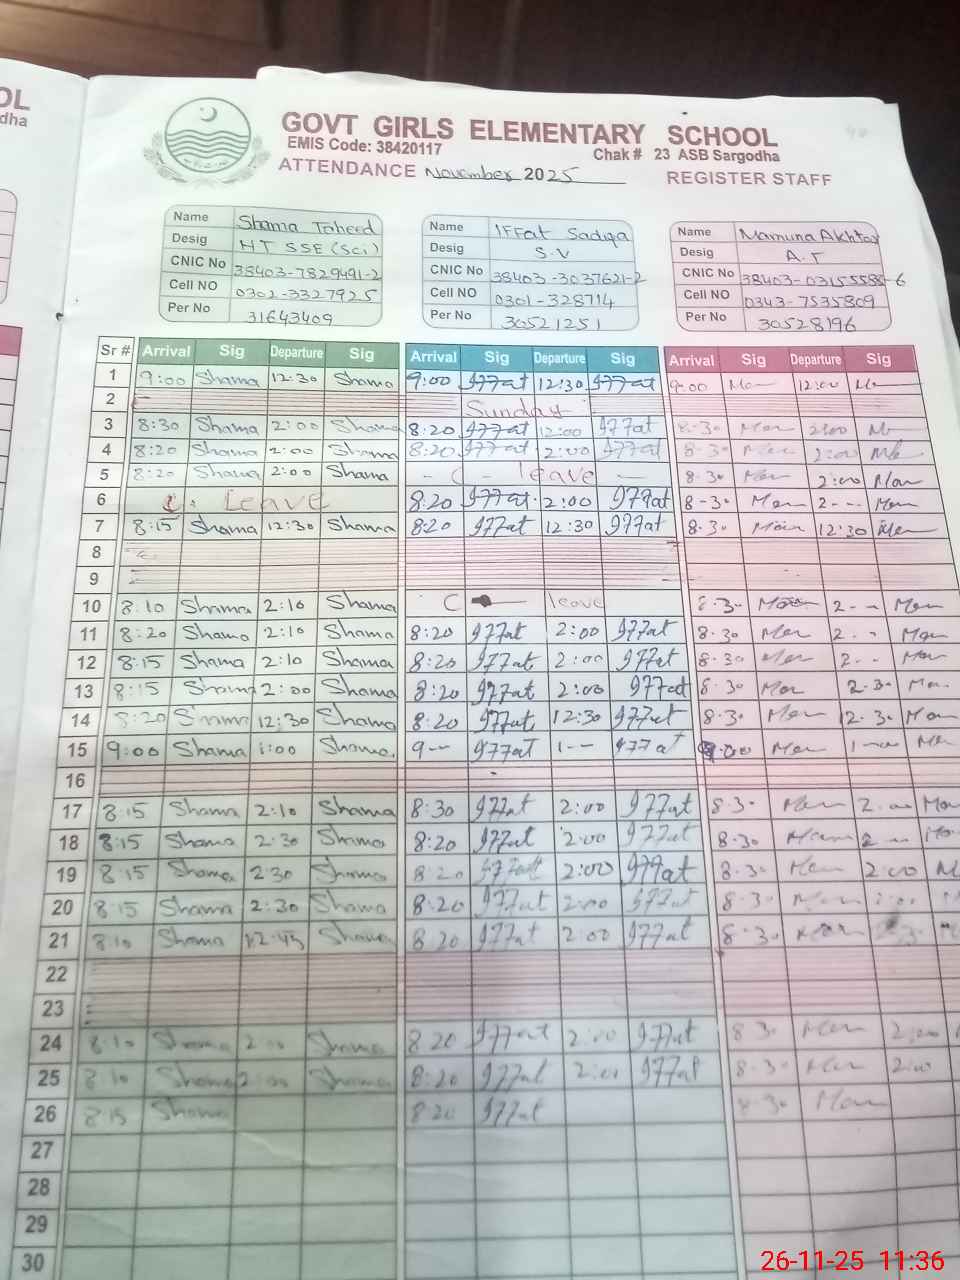 OL
dha
GOVT GIRLS ELEMENTARY SCHOOL
EMIS Code: 38420117
Chak # 23 ASB Sargodha
ATTENDANCE November 2025
REGISTER STAFF
Name Shama Taheed
Desig HT SSE (Sci)
CNIC No 38403-7829491-2
Cell NO 0302-3327925
Per No 31643409
Name Iffat Sadiqa
Desig S.V
CNIC No 38403-3037621-2
Cell NO 0301-328714
Per No 30521251
Name Mamuna Akhtar
Desig A.T
CNIC No
Cell NO 0343-7535809
Per No 30528196
Sr # Arrival Sig Departure Sig Arrival Sig Departure Sig Arrival Sig Departure Sig
1 9:00 Shama 12:30 Shama 9:00 Iffat 12:30 Iffat 9:00 12:00
2 Sunday
3 8:30 Shama 2:00 Shama 8:20 Iffat 12:00 Iffat 8-30 2:00
4 8:20 Shama 2:00 Shama 8:20 Iffat 2:00 Iffat 8-30 2:00
5 8:20 Shama 2:00 Shama - C - leave - 8.30 2:00
6 C. Leave 8:20 Iffat 2:00 Iffat 8-30 2--
7 8:15 Shama 12:30 Shama 8:20 Iffat 12:30 Iffat 8.30 12:30
8
9
10 8:10 Shama 2:10 Shama C leave 8.30 2--
11 8:20 Shama 2:10 Shama 8:20 Iffat 2:00 Iffat 8.30 2--
12 8:15 Shama 2:10 Shama 8:20 Iffat 2:00 Iffat 8-30 2--
13 8:15 Shama 2:00 Shama 8:20 Iffat 2:00 Iffat 8.30 2.30
14 8:20 Shama 12:30 Shama 8:20 Iffat 12:30 Iffat 8.30 2.30
15 9:00 Shama 1:00 Shama 9-- Iffat 1-- Iffat 9:00
16
17 8:15 Shama 2:10 Shama 8:30 Iffat 2:00 Iffat 8.30 2:00
18 8:15 Shama 2:30 Shama 8:20 Iffat 2:00 Iffat 8.30 2--
19 8:15 Shama 2 30 Shama 8:20 Iffat 2:00 Iffat 8.30 2:00
20 8:15 Shama 2:30 Shama 8:20 Iffat 2:00 Iffat 8.30 2:00
21 8:10 Shama 12:45 Shama 8:20 Iffat 2:00 Iffat 8.30
22
23
24 8:10 Shama 2:00 Shama 8:20 Iffat 2:00 Iffat 8 30 2:00
25 8:10 Shama 2:00 Shama 8:20 Iffat 2:00 Iffat 8.30 2:00
26 8:15 Shama 8:20 Iffat 8.30
27
28
29
30
26-11-25 11:36